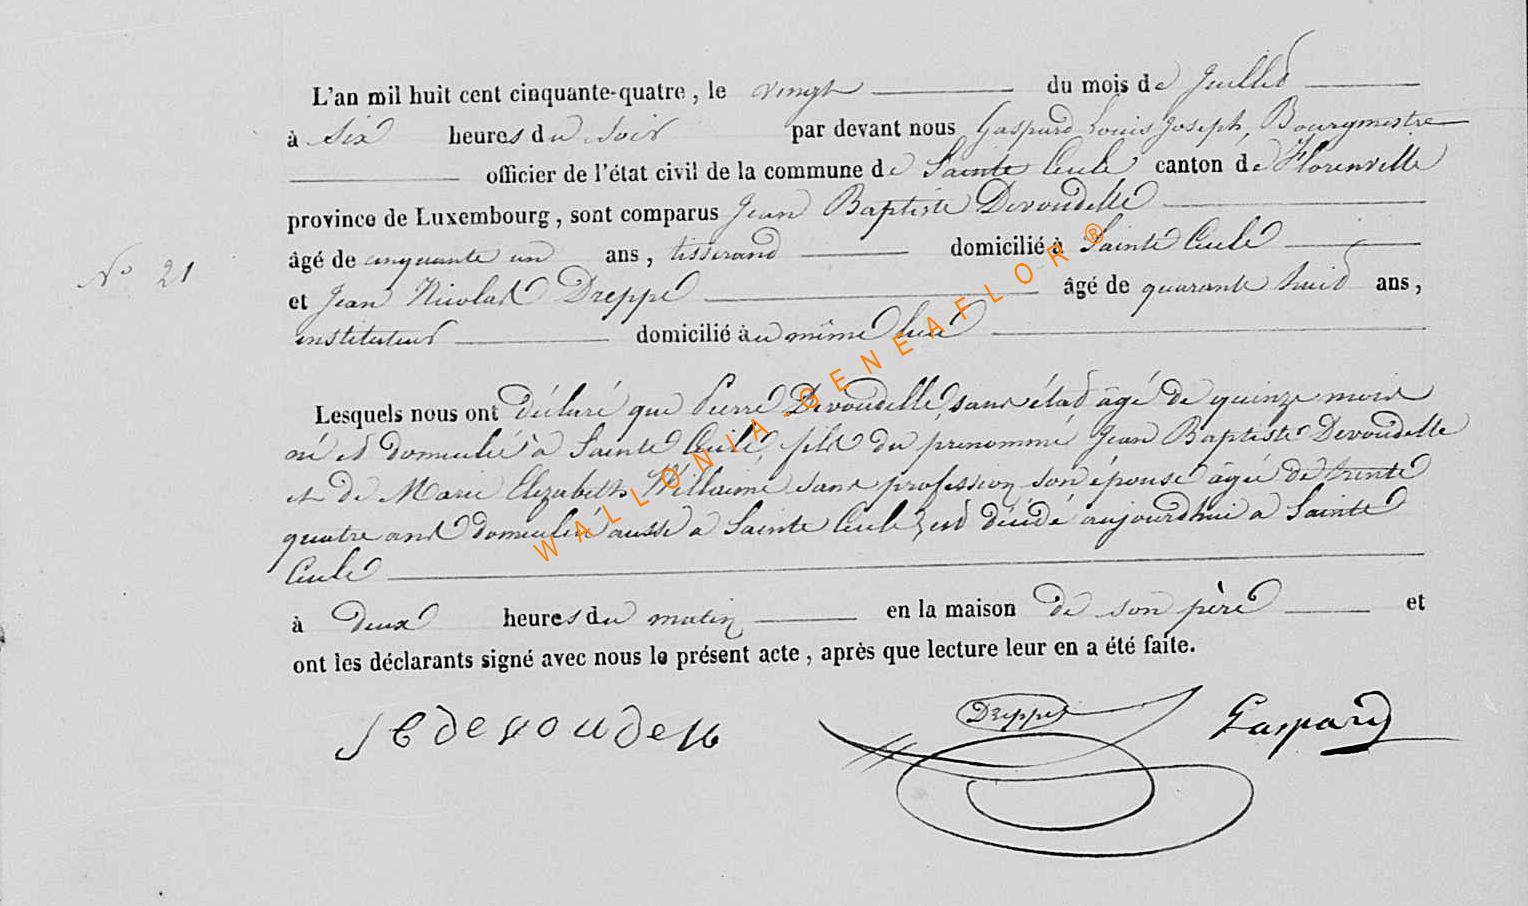 L'an mil huit cent cinquante-quatre, le vingt du mois de Juillet
à six heures du soir par devant nous Gaspard Louis Joseph, Bourgmestre
officier de l'état civil de la commune de Sainte Cecile canton de Florenville
province de Luxembourg, sont comparus Jean Baptiste Devoudelle
âgé de cinquante un ans, tisserand domicilié à Sainte Cecile
N° 21
et Jean Nicolas Dreppe âgé de quarante huit ans,
instituteur domicilié au même lieu
Lesquels nous ont déclaré que Pierre Devoudelle, sans état âgé de quinze mois
né et domicilié à Sainte Cecile, fils du prénommé Jean Baptiste Devoudelle
et de Marie Elizabeth Willaime sans profession son épouse âgée de trente
quatre ans domiciliée aussi a Sainte Cecile, est décédé aujourdhui a Sainte
Cecile
à deux heures du matin en la maison de son père et
ont les déclarants signé avec nous le présent acte, après que lecture leur en a été faite.
J b devoudelle Dreppe Gaspard
WALLONIA-GENEAFLOR ®